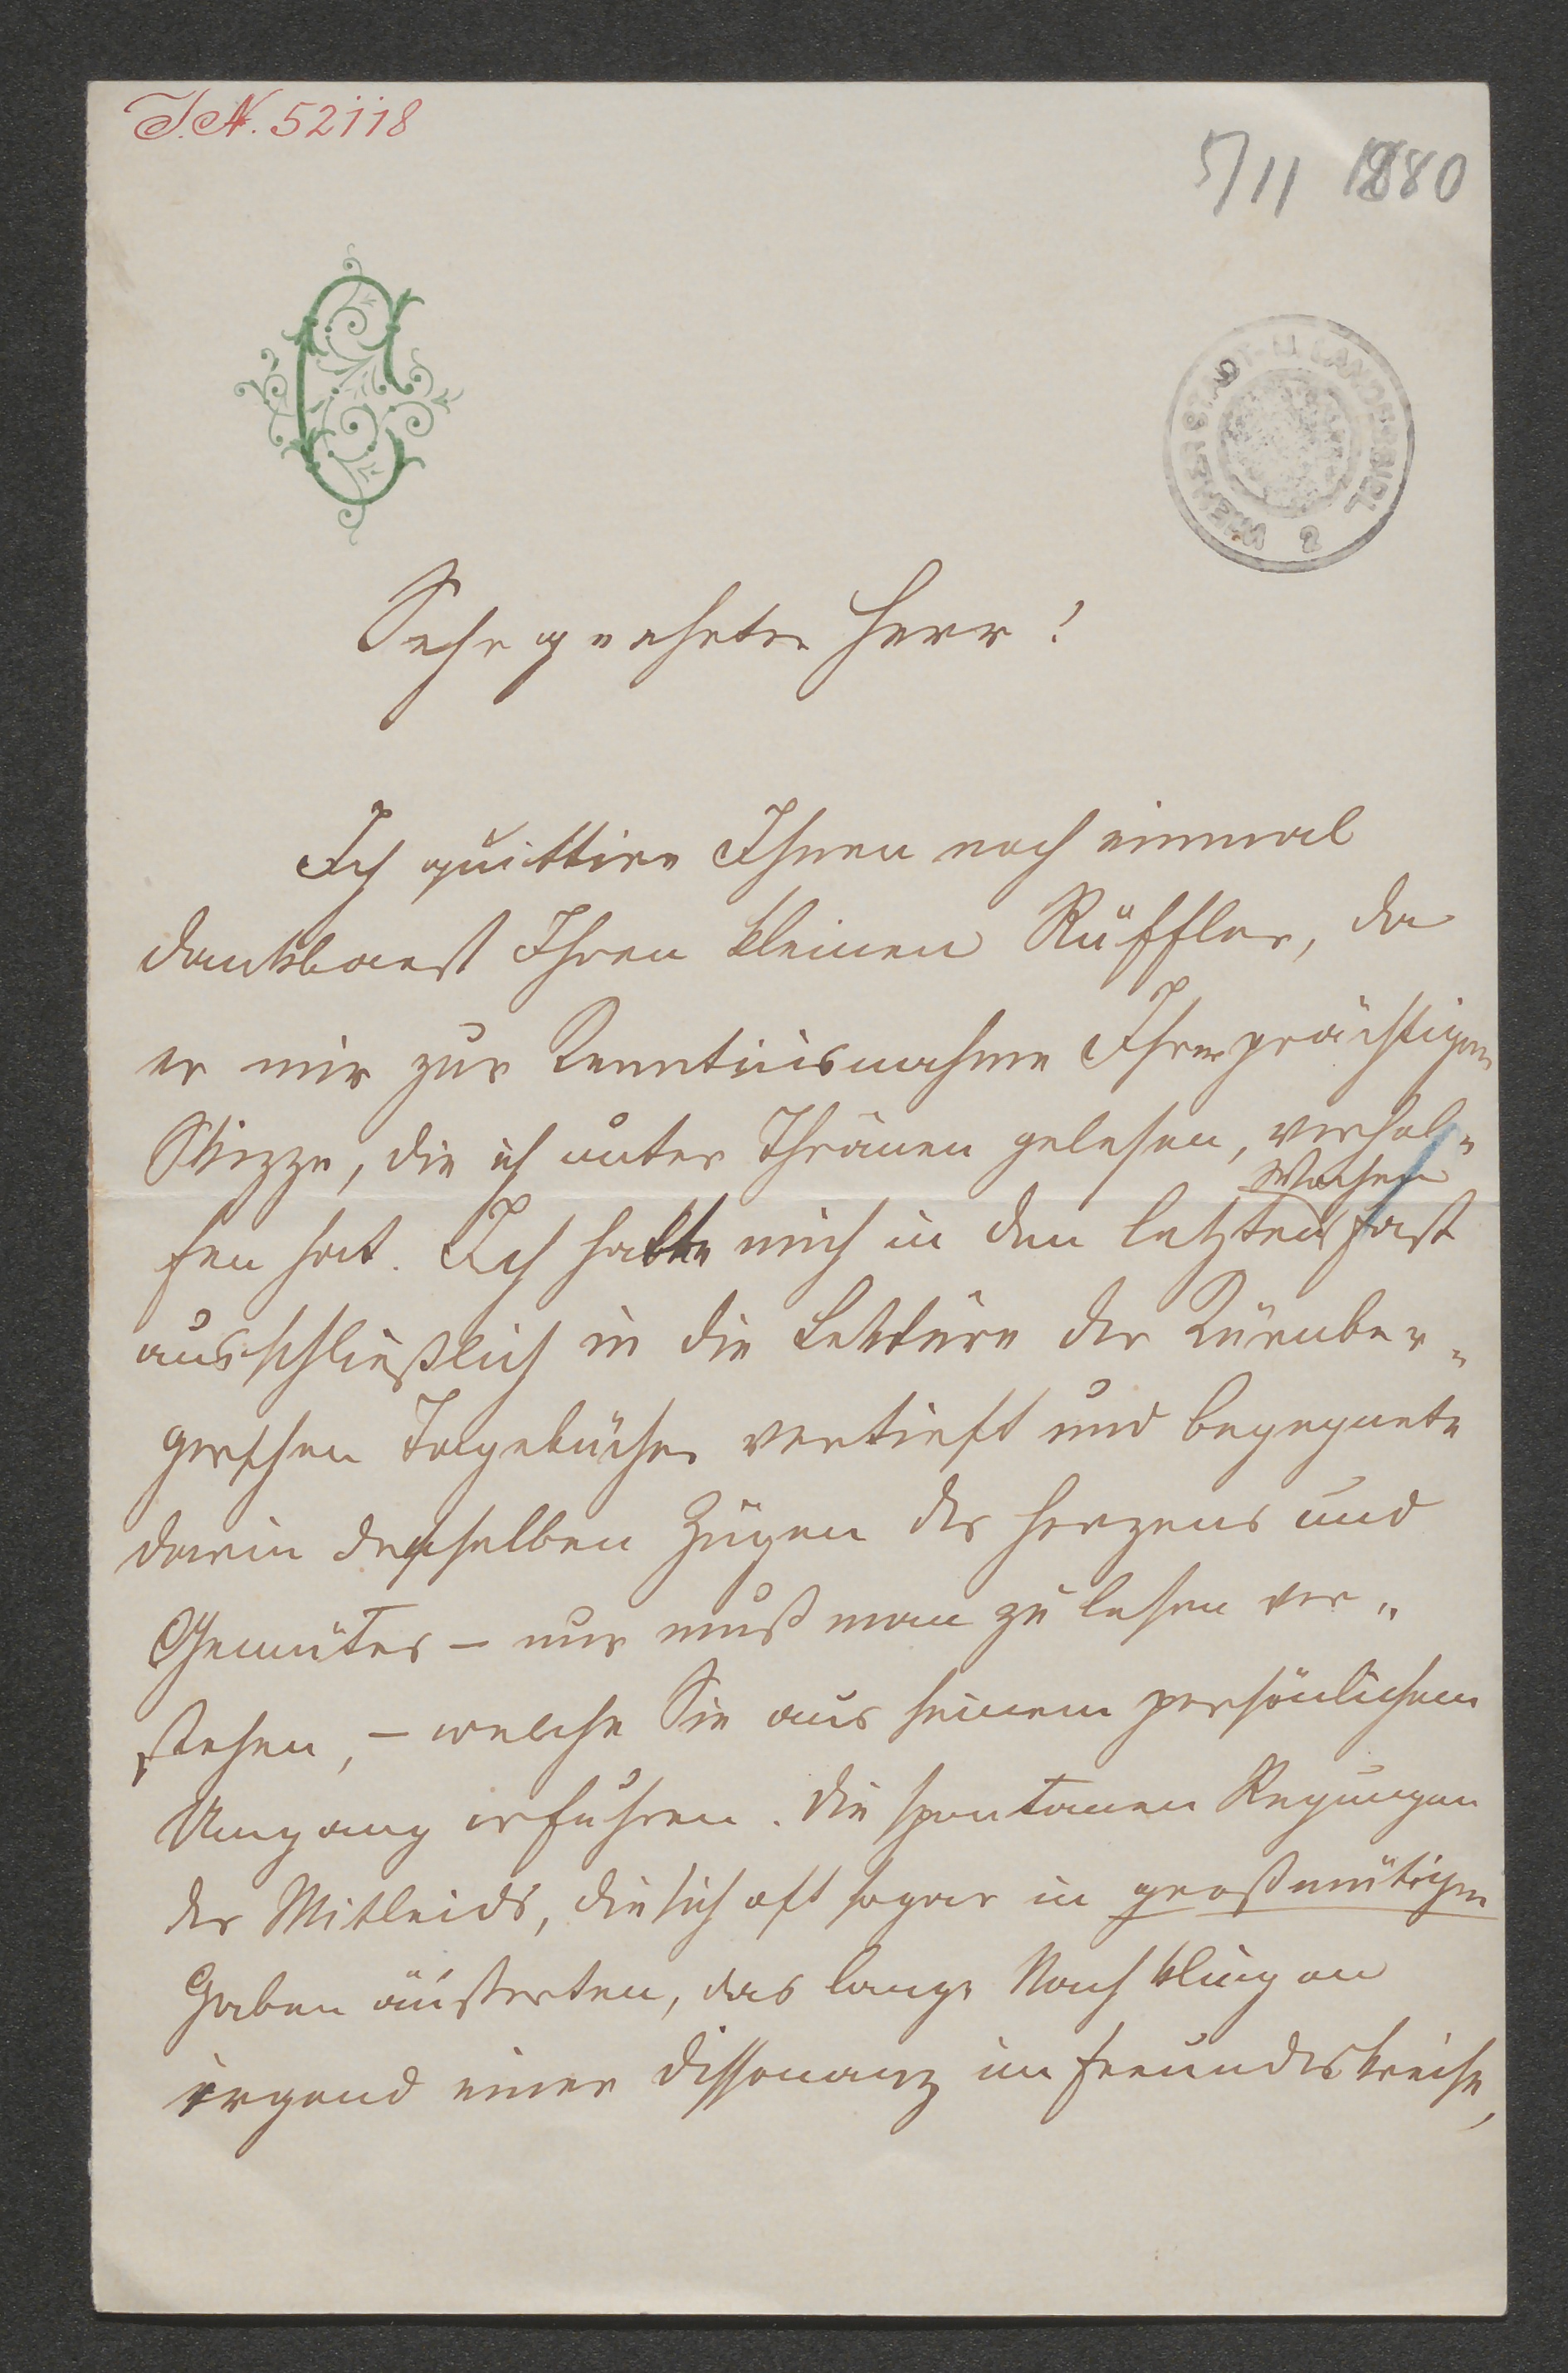 I.N. 52118
5/11 1880
C
WIENER STADT- U LANDESBIBL
2
Sehr geehrter Herr!
Ich quittire Ihnen noch einmal
dankbarst Ihren kleinen Rüffler, da
er mir zur Kenntnisnahme Ihrer prächtigen
Skizze, die ich unter Thränen gelesen, verhol-
Wochen
fen hat. Ich hatte mich in den letzten fast
ausschließlich in die Lektüre der Kürnber-
ger'schen Tagebücher vertieft und begegnete
darin denselben Zügen des Herzens und
Gemütes – nur muß man zu lesen ver-
stehen, – welche Sie aus seinem persönlichen
Umgang erfuhren. Die spontanen Regungen
des Mitleids, die sich oft sogar in großmütigen
Gaben äußerten, das lange Nachklingen
irgend einer Dissonanz im Freundeskreise,